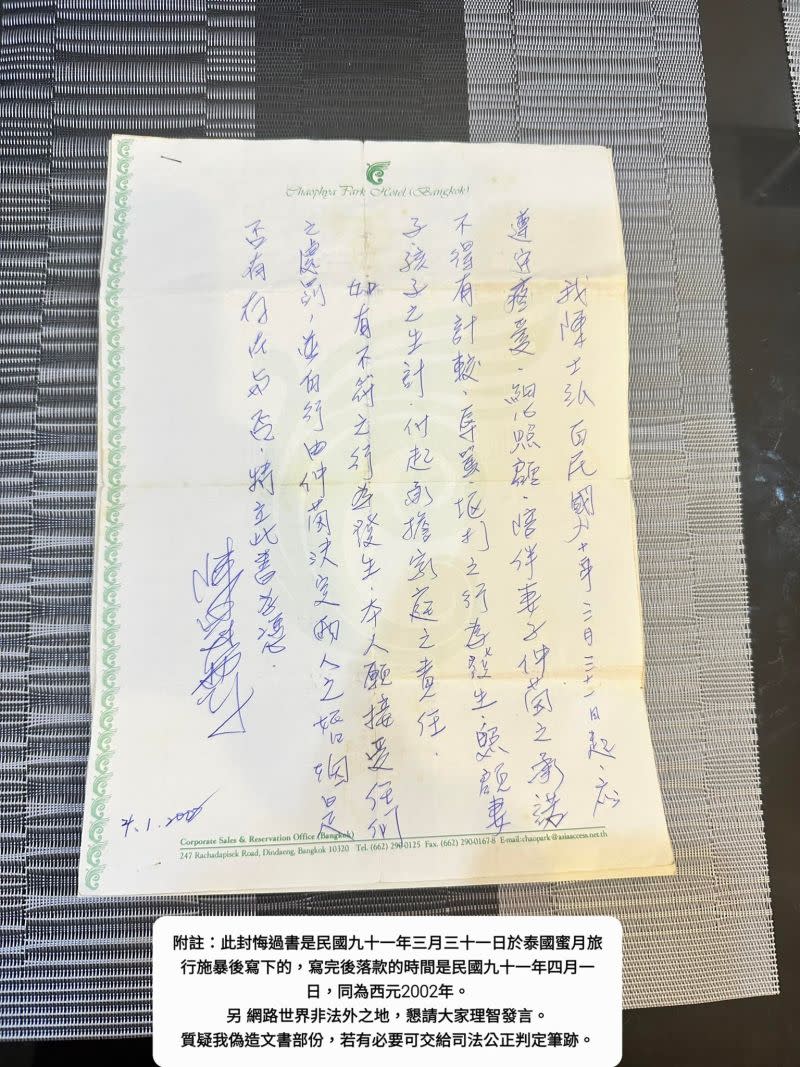 Chaophya Park Hotel (Bangkok)
我陳士 自民國九十年三月三十一日起，應
遵守疼愛、細心照顧、陪伴妻子仲茵之承諾
不得有計較、辱罵、毆打之行為發生，照顧妻
子孩子之生計，付起承擔家庭之責任．
如有不符之行為發生，本人願接受任何
之處罰，並自行由仲茵決定兩人之婚姻是
否有存在與否，特立此書為憑．
陳
4.1.2002
Corporate Sales & Reservation Office (Bangkok)
247 Rachadapisek Road, Dindaeng, Bangkok 10320 Tel. (662) 290-0125 Fax. (662) 290-0167-8 E-mail:chaopark@asiaaccess.net.th
附註：此封悔過書是民國九十一年三月三十一日於泰國蜜月旅
行施暴後寫下的，寫完後落款的時間是民國九十一年四月一
日，同為西元2002年。
另 網路世界非法外之地，懇請大家理智發言。
質疑我偽造文書部份，若有必要可交給司法公正判定筆跡。